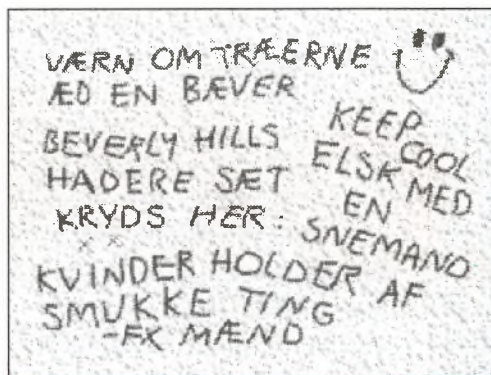 VÆRN OM TRÆERNE
ÆD EN BÆVER
BEVERLY HILLS
HADERE SÆT
KRYDS HER:
x x
KEEP
COOL
ELSK MED
EN
SNEMAND
KVINDER HOLDER AF
SMUKKE TING
-FX MÆND